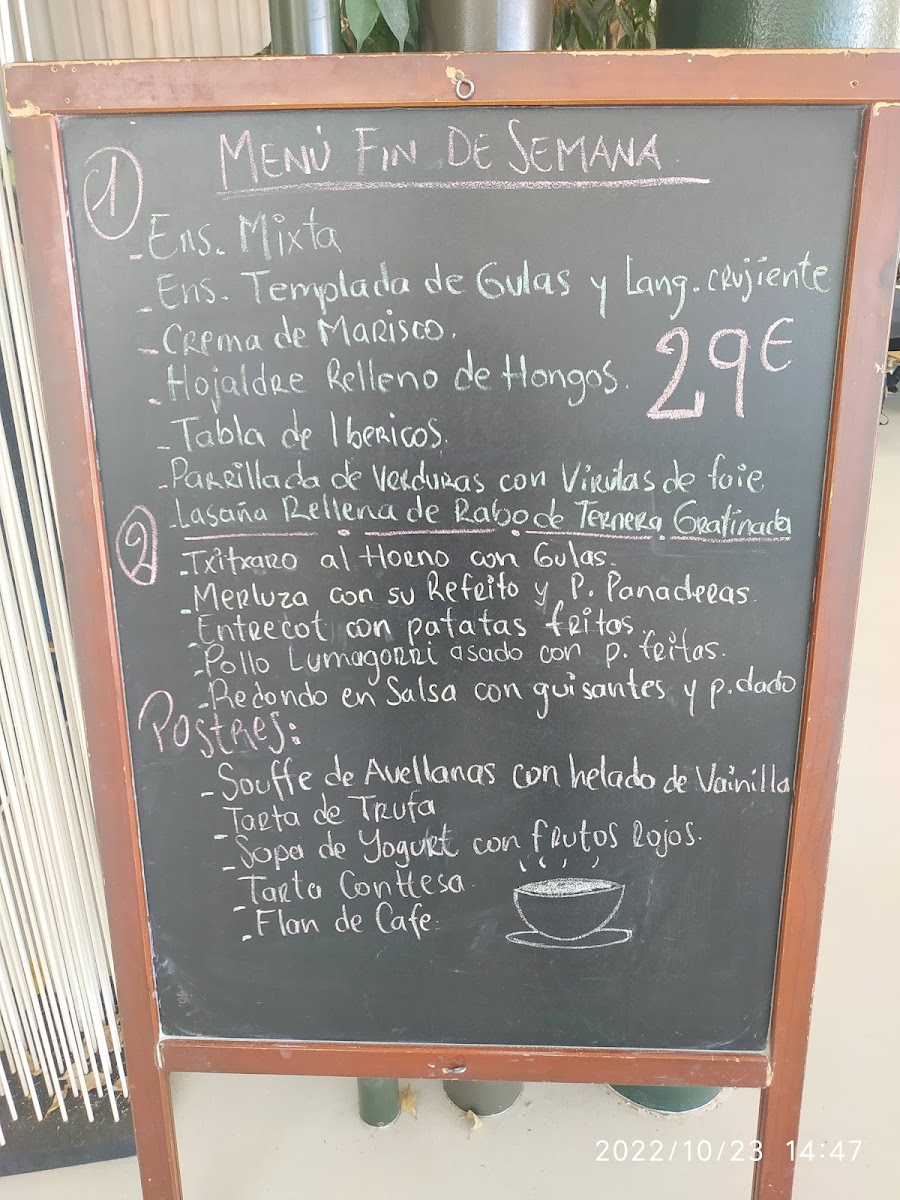 MENÚ FIN DE SEMANA
1
- Ens. Mixta
- Ens. Templada de Gulas y Lang. crujiente
- Crema de Marisco.
29€
- Hojaldre Relleno de Hongos.
- Tabla de Ibericos.
- Parrillada de Verduras con Virutas de foie
- Lasaña Rellena de Rabo de Ternera Gratinada
2
- Txitxaro al Horno con Gulas.
- Merluza con su Refrito y P. Panaderas.
- Entrecot con patatas fritas
- Pollo Lumagorri asado con p. fritas.
- Redondo en Salsa con guisantes y p. dado
Postres:
- Souffe de Avellanas con helado de Vainilla
- Tarta de Trufa
- Sopa de Yogurt con frutos Rojos.
- Tarta Conttesa.
- Flan de Cafe.
2022/10/23 14:47